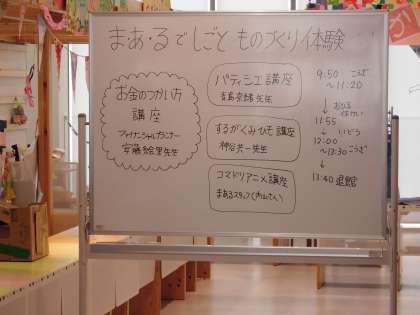 まぁ・るでしごと ものづくり体験
お金のつかい方
講座
ファイナンシャルプランナー
安藤絵里先生
パティシエ講座
先生
するがくみひも講座
神谷共一先生
コマドリアニメ講座
まぁるスタッフ(内山さん)
9:50 こうざ
〜11:20
↓ おひる
11:55
↓ いどう
12:00
〜13:30 こうざ
↓
13:40 退館